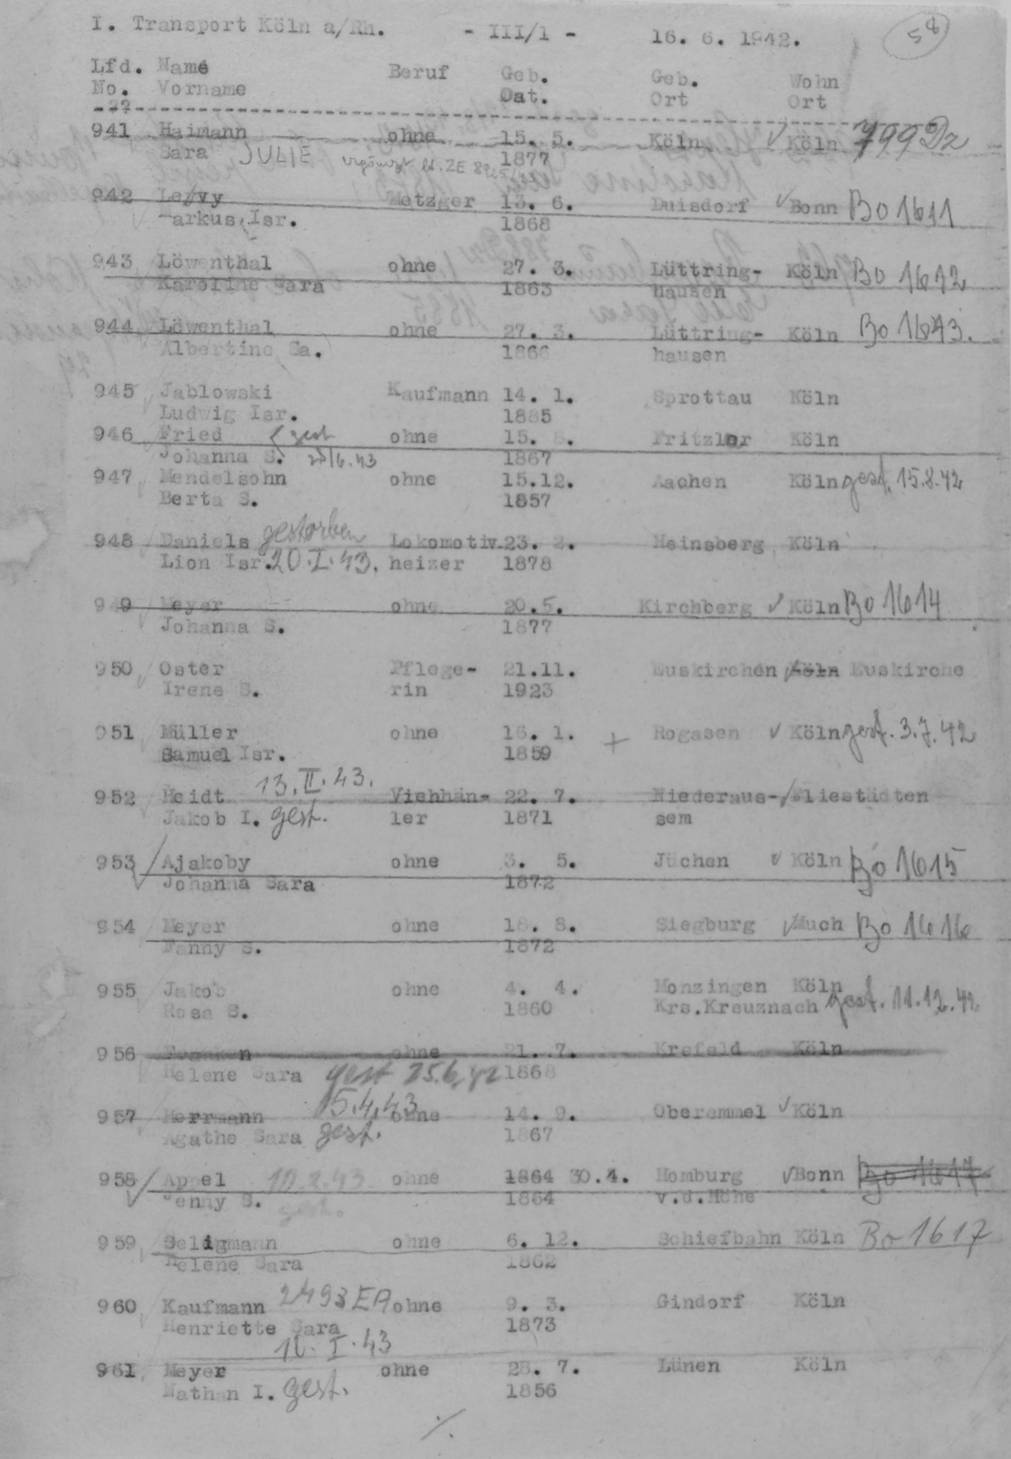 I. Transport Köln a/Rh. - III/1 - 16. 6. 1942. 58
Lfd. Name Beruf Geb. Geb. Wohn
No. Vorname Dat. Ort Ort
941 Haimann ohne 15. 5. Köln Köln 799 Dz
Sara JULIE 1877
942 Levy Metzger 13. 6. Duisdorf Bonn Bo 1611
Markus, Isr. 1868
943 Löwenthal ohne 27. 3. Lüttring- Köln Bo 1612
Karoline Sara 1863 hausen
944 Löwenthal ohne 27. 3. Lüttring- Köln Bo 1613.
Albertine Sa. 1866 hausen
945 Jablowski Kaufmann 14. 1. Sprottau Köln
Ludwig Isr. 1885
946 Fried gest ohne 15. 8. Fritzlar Köln
Johanna S. 1867
947 Mendelsohn ohne 15.12. Aachen Köln gest. 15.8.42
Berta S. 1857
948 Daniels gestorben Lokomotiv 23. 2. Heinsberg Köln
Lion Isr. 20.I.43. heizer 1878
949 Meyer ohne 20.5. Kirchberg Köln Bo 1614
Johanna S. 1877
950 Oster Pflege- 21.11. Euskirchen Köln Euskirche
Irene S. rin 1923
951 Müller ohne 16. 1. + Rogasen Köln gest. 3.7.42
Samuel Isr. 1859
952 Heidt 13.II.43. Viehhän- 22. 7. Niederaus- Gliestädten
Jakob I. gest. ler 1871 sem
953 Ajakoby ohne 3. 5. Jüchen Köln Bo 1615
Johanna Sara 1872
954 Meyer ohne 18. 8. Siegburg Much Bo 1616
Fanny S. 1872
955 Jakob ohne 4. 4. Monzingen Köln
Rosa S. 1860 Krs.Kreuznach gest. 11.12.42
956 ohne 21. 7. Krefeld Köln
Helene Sara gest 25.6.42 1868
957 Herrmann 15.4.43 ohne 14. 9. Oberemmel Köln
Agathe Sara gest. 1867
958 Appel 10.2.43 ohne 1864 30.4. Homburg Bonn Bo 1617
Jenny S. gest. 1864 v.d.Höhe
959 Seligmann ohne 6. 12. Schiefbahn Köln Bo 1617
Helene Sara 1862
960 Kaufmann 2493 EA ohne 9. 3. Gindorf Köln
Henriette Sara 1873
I.43
961 Meyer ohne 28. 7. Lünen Köln
Nathan I. gest. 1856
./.